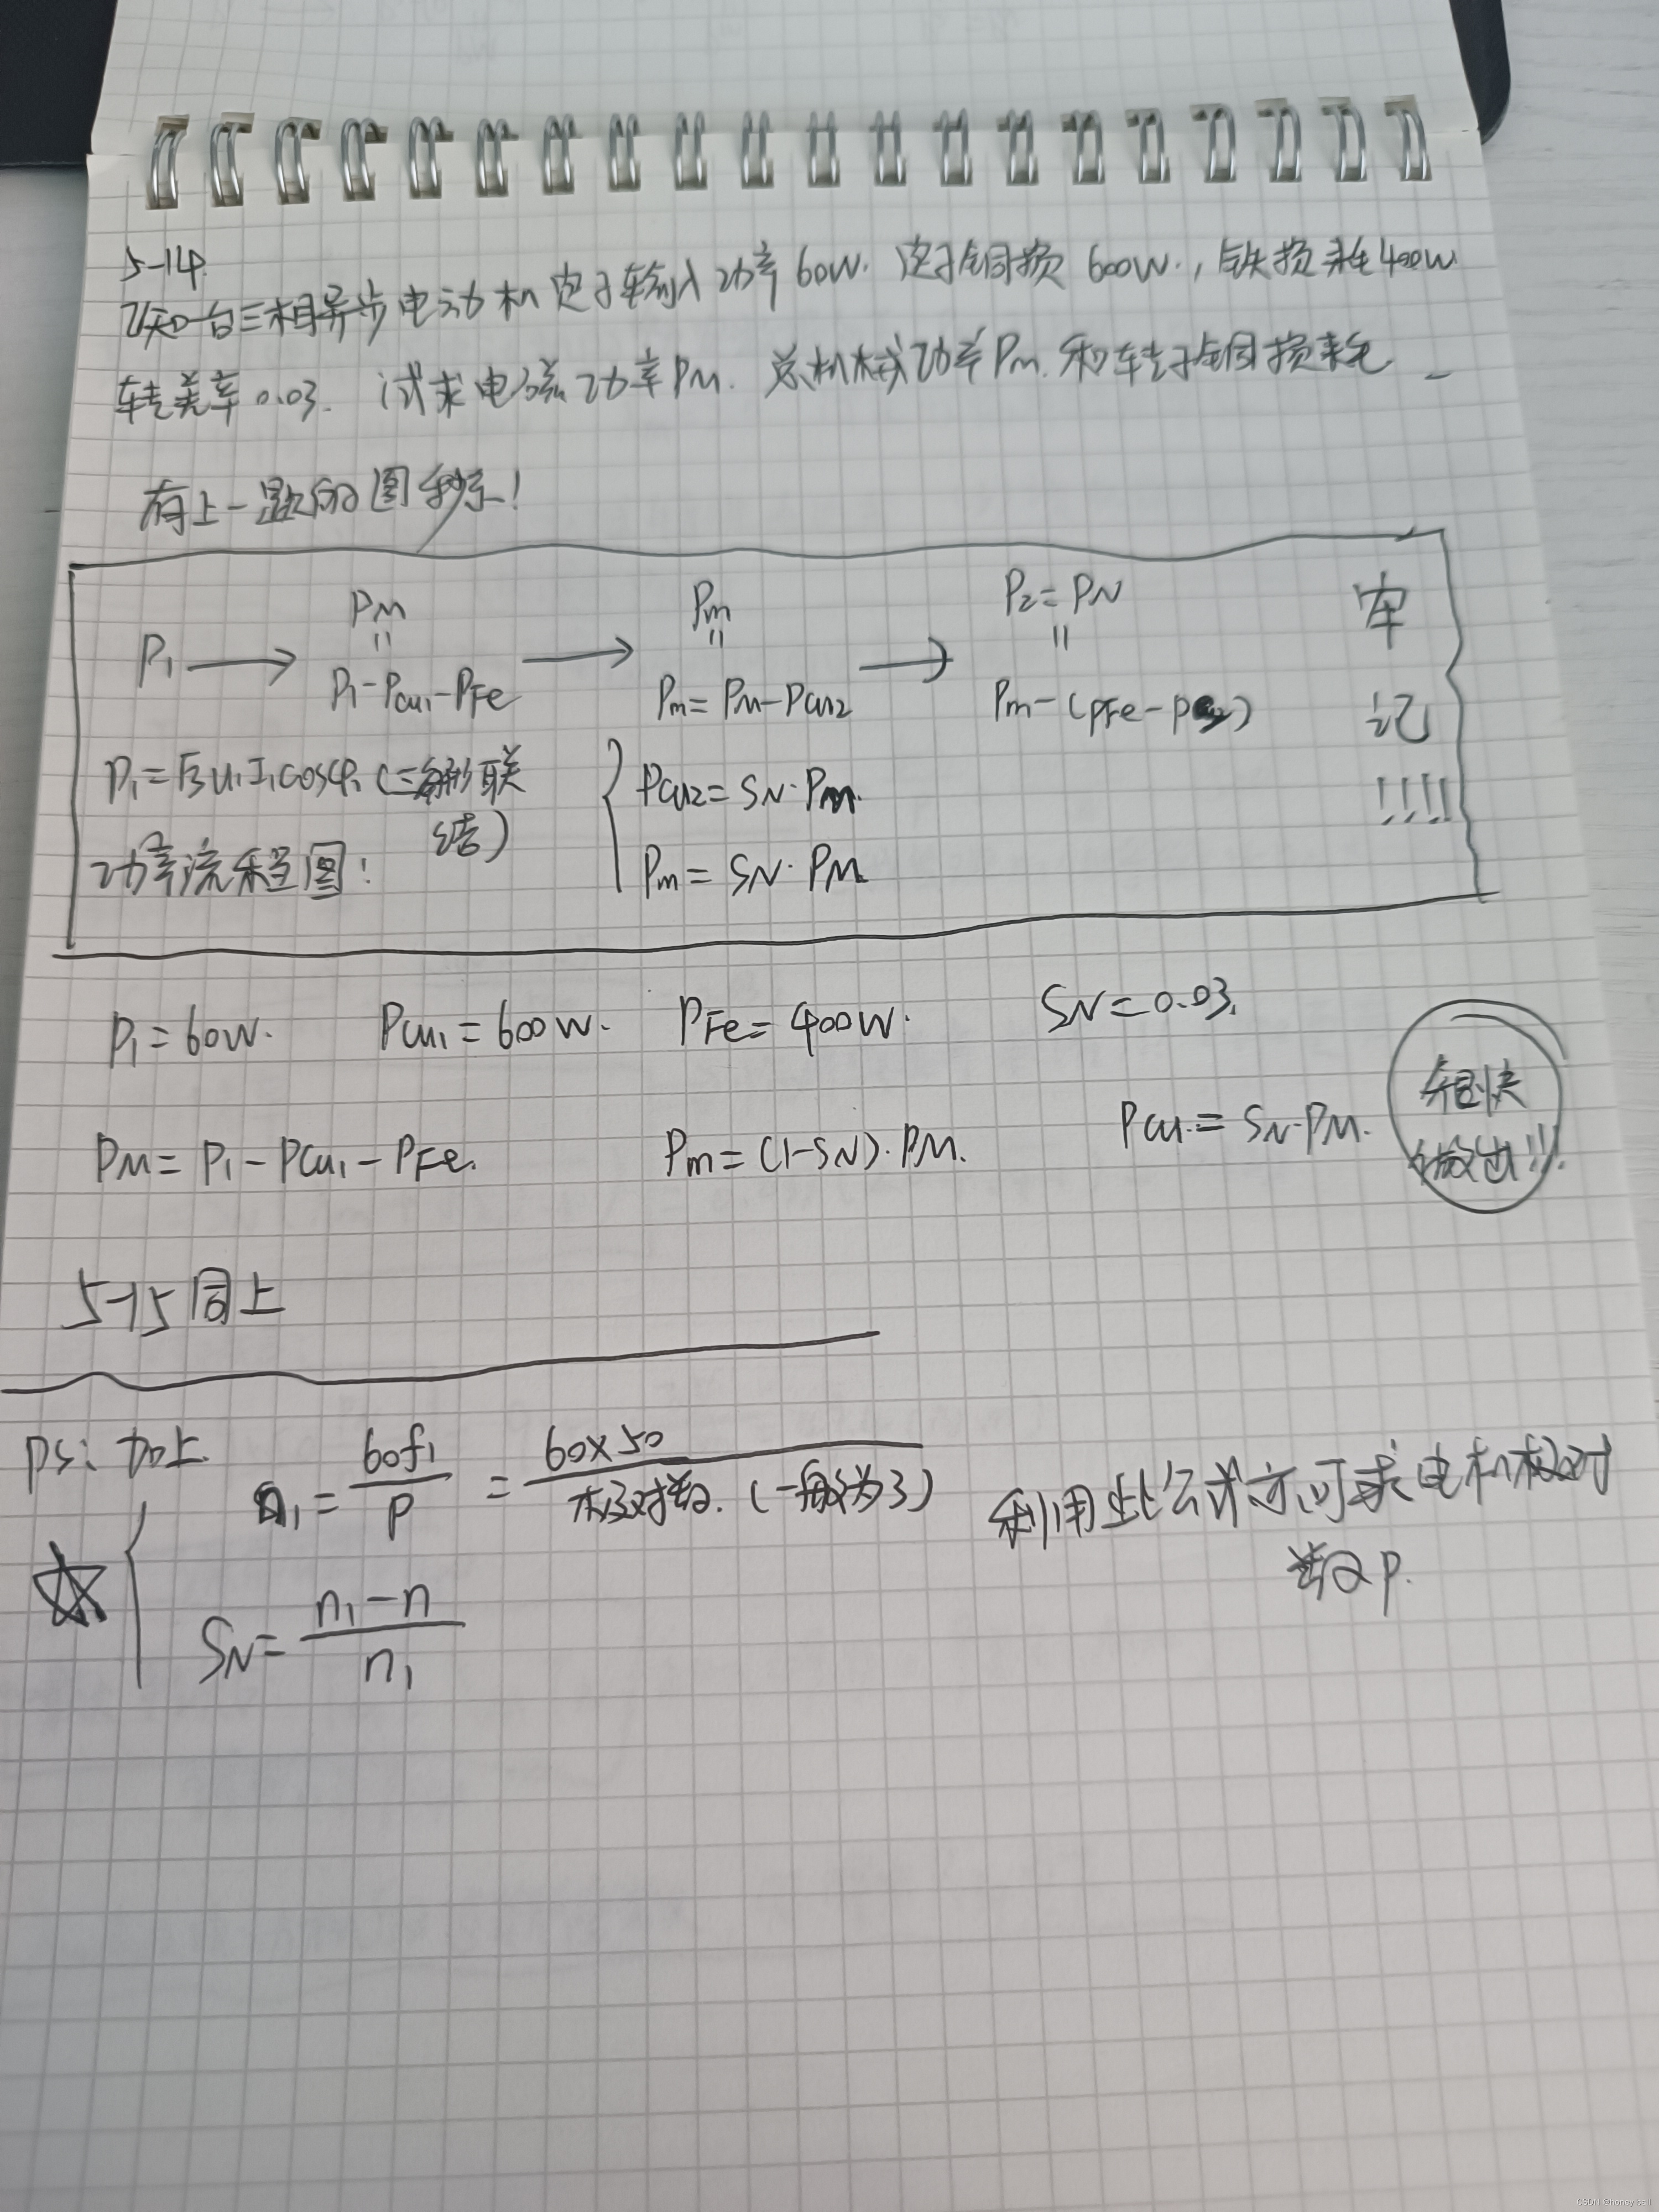 5-14
已知一台三相异步电动机定子输入功率60W. 定子铜损600W., 铁损耗400W
转差率0.03. 试求电磁功率PM. 总机械功率Pm. 和转子铜损耗
有上一题的图秒杀!
P1 → PM = P1-Pcu1-PFe → Pm = Pm=PM-Pcu2 → P2=PN = Pm-(PFe-P
牢记!!!!
P1=√3U1I1cosφ1 (三角形联结)
Pcu2=SN·PM.
功率流程图:
Pm=SN·PM
P1=60W. Pcu1=600W. PFe=400W. SN=0.03.
PM=P1-Pcu1-PFe. Pm=(1-SN)·PM. Pcu.=SN·PM.
很快
做出!!!
5-15同上
ps: 加上
n1=60f1/P=60×50/极对数. (一般为3) 利用此公式亦可求电机极对
数P.
SN=n1-n/n1
CSDN @honey ball